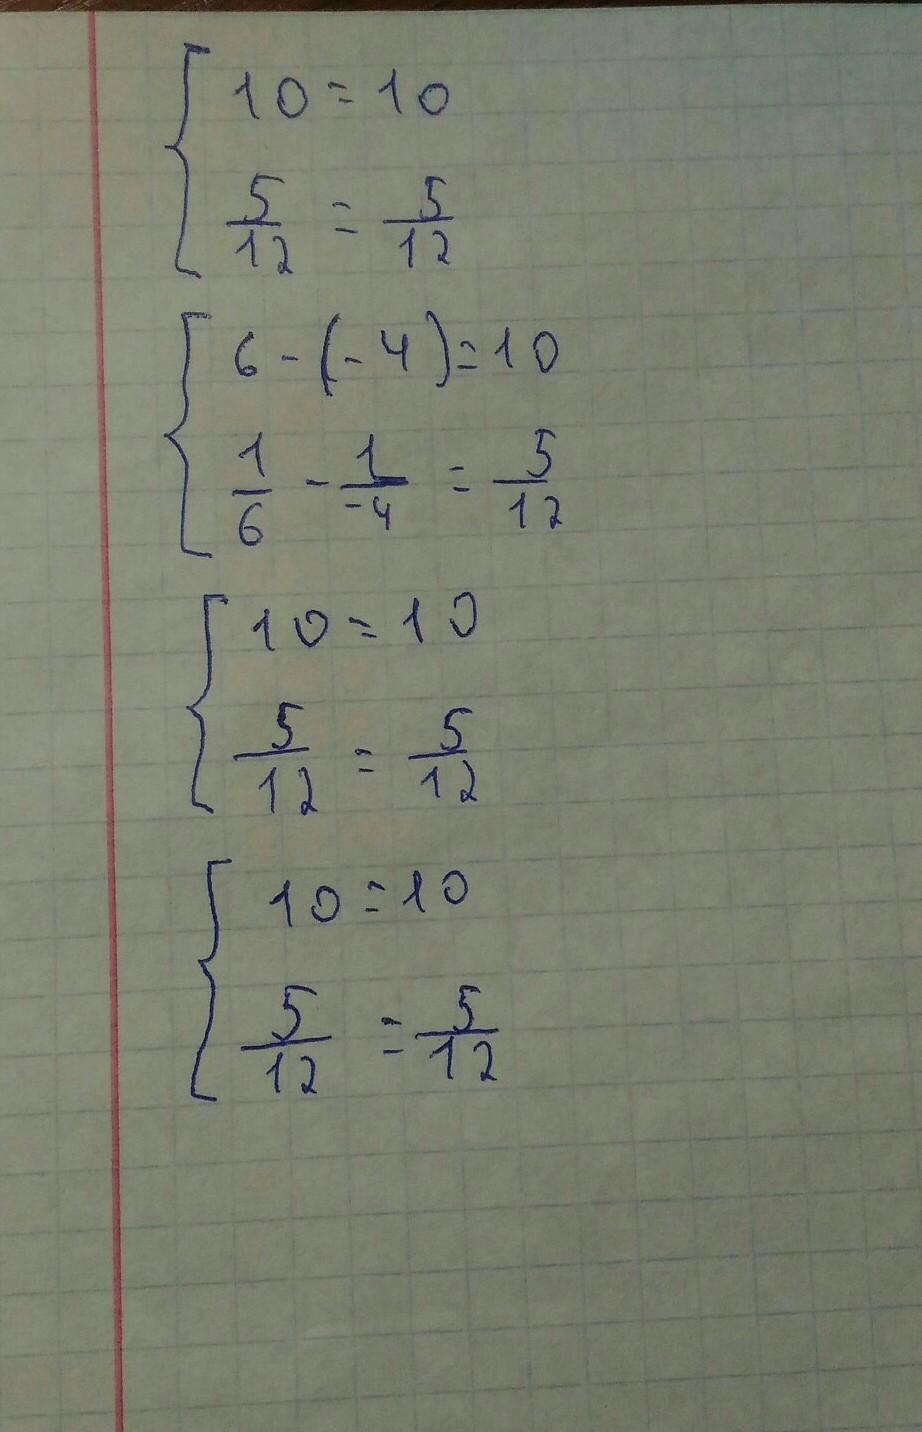 10 = 10
5/12 = 5/12
6 - (-4) = 10
1/6 - 1/-4 = 5/12
10 = 10
5/12 = 5/12
10 = 10
5/12 = 5/12